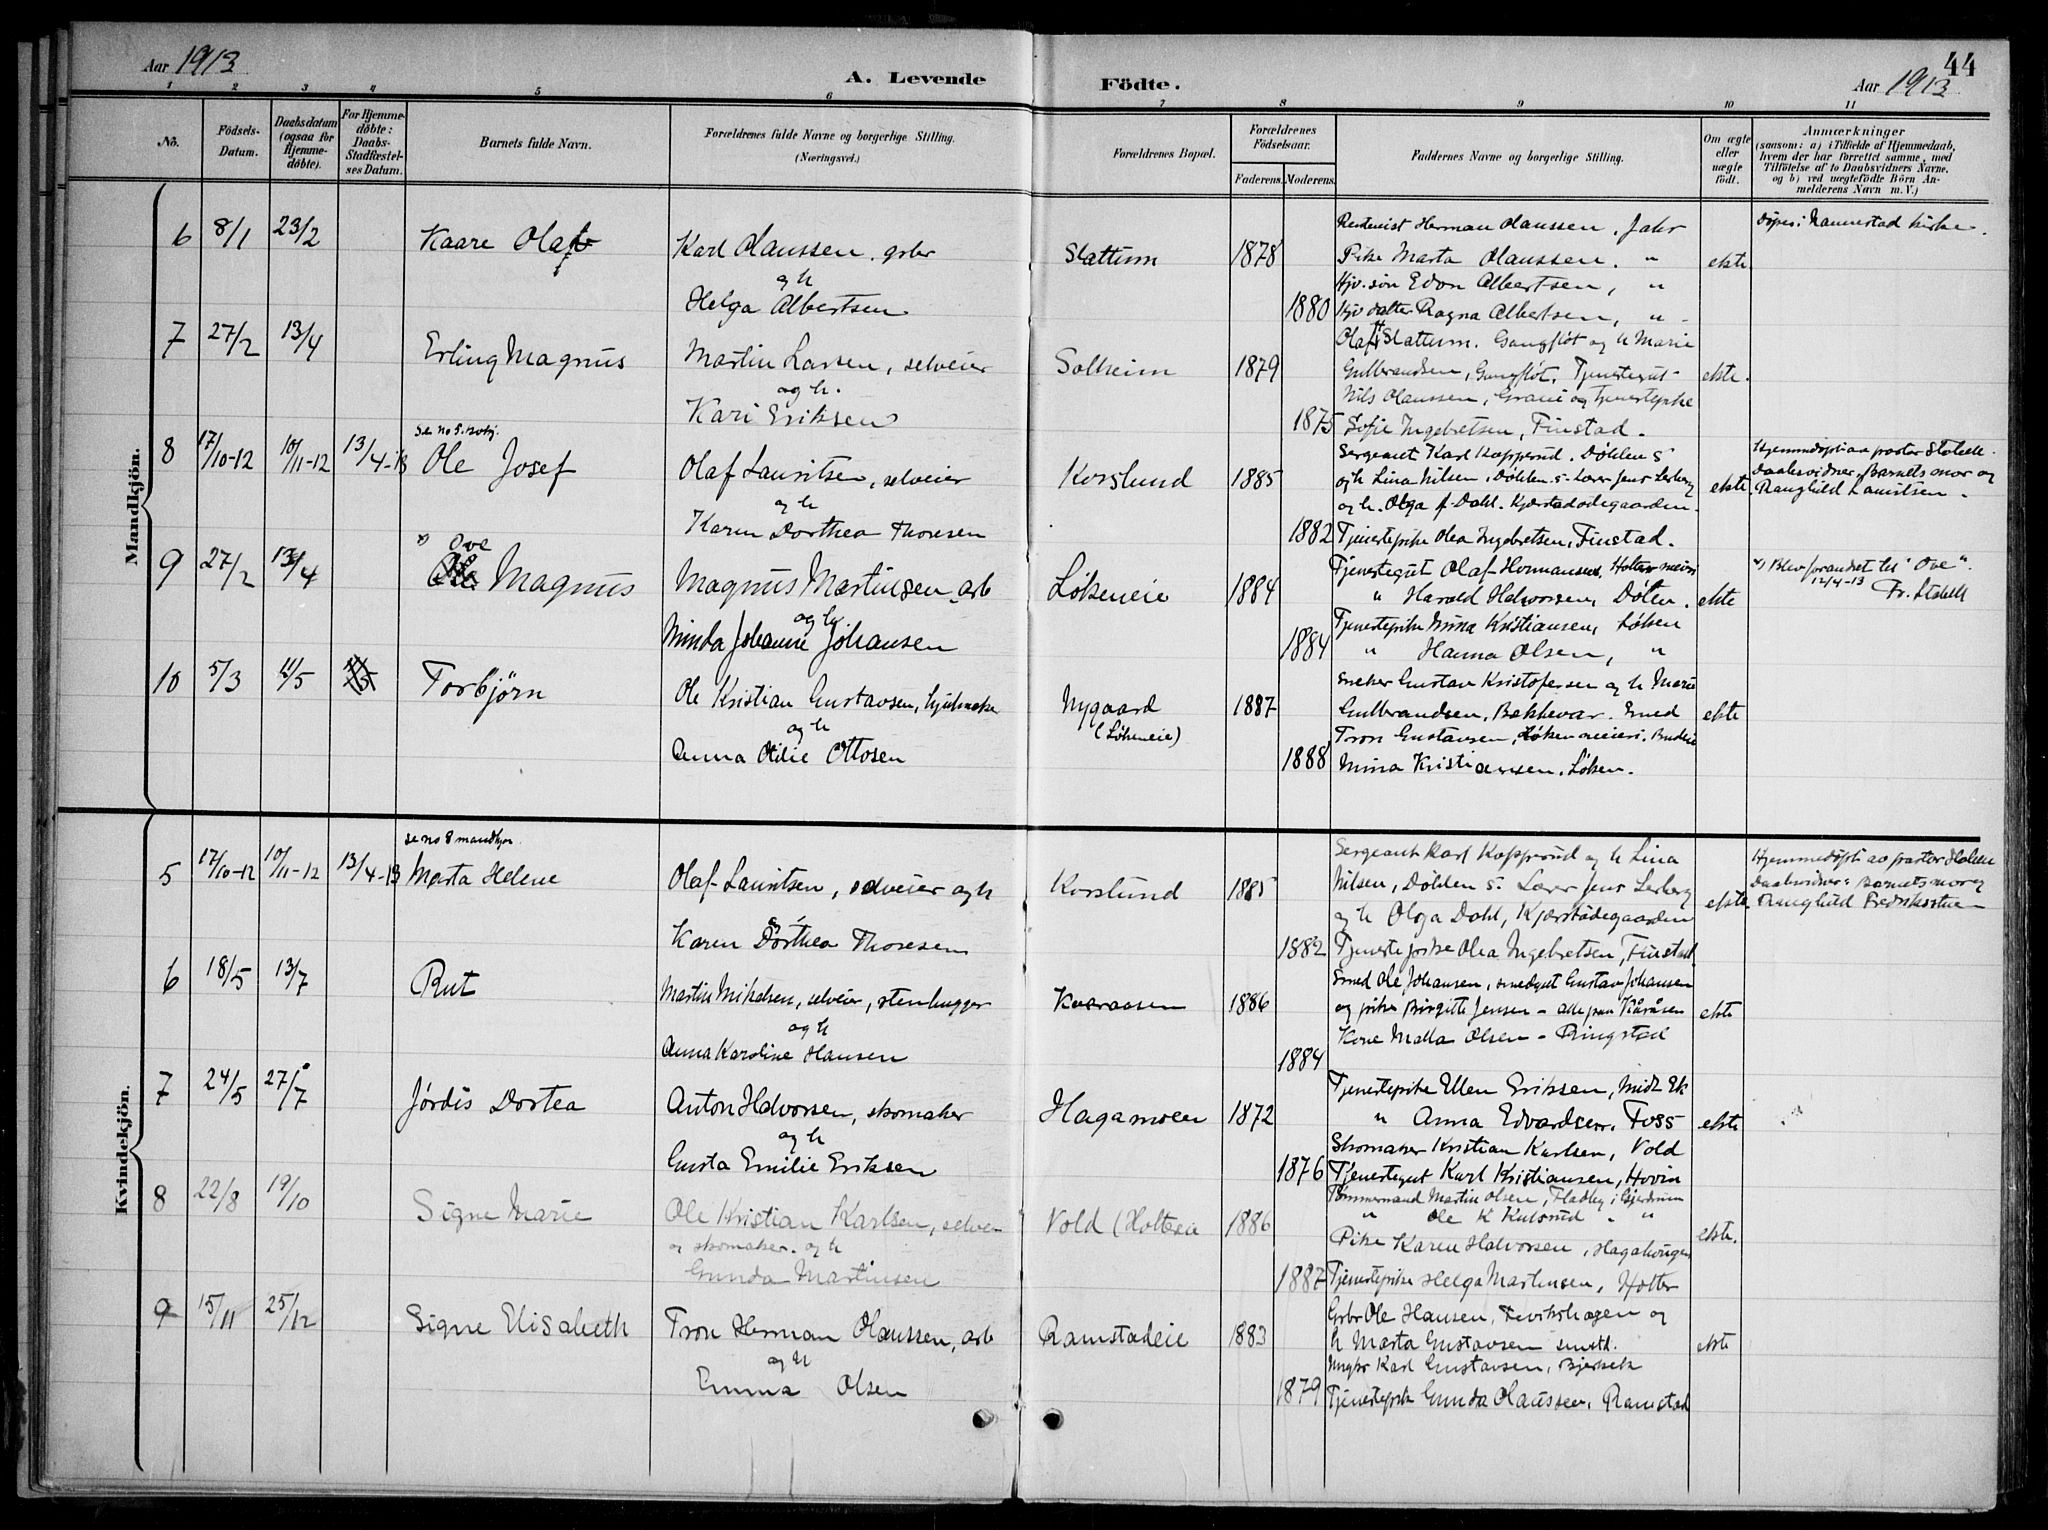 Aar 1913
A. Levende Födte.
44
Aar 1913
1 2 3 4 5 6 7 8 9 10 11
No.
Födsels-Datum.
Daabsdatum (ogsaa for Hjemmedöbte).
For Hjemmedöbte: Daabs-Stadfæstelses Datum.
Barnets fulde Navn.
Forældrenes fulde Navne og borgerlige Stilling.
(Næringsvei.)
Forældrenes Bopæl.
Forældrenes Födselsaar.
Faderens. Moderens.
Faddernes Navne og borgerlige Stilling.
Om ægte eller uægte födt.
Anmærkninger
(saasom: a) i Tilfælde af Hjemmedaab, hvem der har forrettet samme, med Tilföielse af to Daabsvidners Navne, og b) ved uægtefödte Börn Anmelderens Navn m. V.)
Mandkjön.
6 8/1 23/2 Kaare Olaf
Karl Olaussen, grbr
og h
Helga Albertsen
Slattum 1878 1880
Herman Olaussen, Jahr
Pike Marta Olaussen. "
Gbr. søn Edvn Albertsen, "
datter Ragna Albertsen, "
ekte
Døpt i Nannestad kirke.
7 27/2 13/4 Erling Magnus
Martin Larsen, selveier
og h.
Kari Eriksen
Solheim 1879 1875
Olaf Slattum. Gangfløt og h Marie
Gulbrandsen, Gangfløt, Tjenestegut
Nils Olaussen, og tjenestepike
Sofie Ingebretsen, Finstad.
ekte.
8 17/10-12 10/11-12 13/4-13
se no 5. kvkj.
Ole Josef
Olaf Lauritsen, selveier
og h
Karen Dorthea Thoresen
Korslund 1885 1882
Sergeant Karl Kopperud. Døhlen s
og h Lina Nilsen, Døhlen s. Lærer Jens Lerberg
og h. Olga f. Dahl. Kjærstadødegaarden.
Tjenestepike Olea Ingebretsen, Finstad.
ekte
Hjemmedøpt av pastor
Daabsvidner, Barnets mor og
Ranghild Lauritsen.
9 27/2 13/4
x) Ove
Ole Magnus
Magnus Martinsen, arb
og h
Minda Johanne Johansen
Løkeneie 1884 1884
Tjenestegut Olaf Hermansen, Holter meieri
" Harald Halvorsen, Døhlen.
Tjenestepike Mina Kristiansen, Løken
" Hanna Olsen, "
ekte
x) Blev forandret til "Ove".
12/4-13
10 5/3 11/5 Torbjørn
Ole Kristian Gustavsen, hjulmaker
og h
Anna Otilie Ottosen
Nygaard
(Løkeneie)
1887 1888
Snekker Gustav Kristofersen og h Marie
Gulbrandsen, Bekkevar. Smed
Tron Gustavsen, Løken meieri. Budeie
Mina Kristiansen, Løken.
ekte
Kvindekjön.
5 17/10-12 10/11-12 13/4-13
se no 8 mandkjøn
Marta Helene
Olaf Lauritsen, selveier og h
Karen Dorthea Thoresen
Korslund 1885 1882
Sergeant Karl Kopperud og h Lina
Nilsen, Døhlen s. Lærer Jens Lerberg
og h Olga Dahl, Kjærstadødegaarden
Tjenestepike Olea Ingebretsen, Finstad.
ekte.
Hjemmedøpt av pastor
Daabsvidner: Barnets mor og
Ranghild
6 18/5 13/7 Rut
Martin Mikelsen, selveier, stenhugger
og h
Anna Karoline Hansen
Kaaraasen 1886 1884
Smed Ole Johansen, smedgut Gustav Johansen
og pike Birgitte Jensen - alle paa Kåråsen
Kone Malla Olsen - Ringstad
ekte
7 24/5 27/7 Jórdis Dortea
Anton Halvorsen, skomaker
og h
Gusta Emilie Eriksen
Hagamoen 1872 1876
Tjenestepike Ellen Eriksen, Midt Ek
" Anna Edvardsen, Foss
Skomaker Kristian Karlsen, Vold
Tjenestegut Karl Kristiansen, Hovin
ekte
8 22/8 19/10 Signe Marie
Ole Kristian Karlsen, selveier
og skomaker. og h
Gunda Martinsen
Vold (Holtereie 1886 1887
Tømmermand Martin Olsen, Fladby i Gjerdrum
" Ole K Kulsrud " "
Pike Karen Halvorsen, Hagahaugen
Tjenestepike Helga Martinsen, Holter
ekte.
9 15/11 25/12 Signe Elisabeth
Tron Herman Olaussen, arb
og h
Emma Olsen
Ramstadeie 1883 1879
Grbr Ole Hansen, og
h Marta Gustavsen smstd.
Ungkr Karl Gustavsen, Bjerkeli
Tjenestepike Gunda Olaussen, Ramstad
ekte